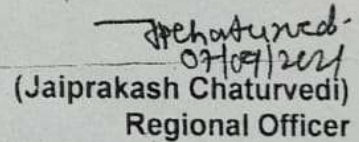 Jpchaturved.
07/09/2021
(Jaiprakash Chaturvedi)
Regional Officer